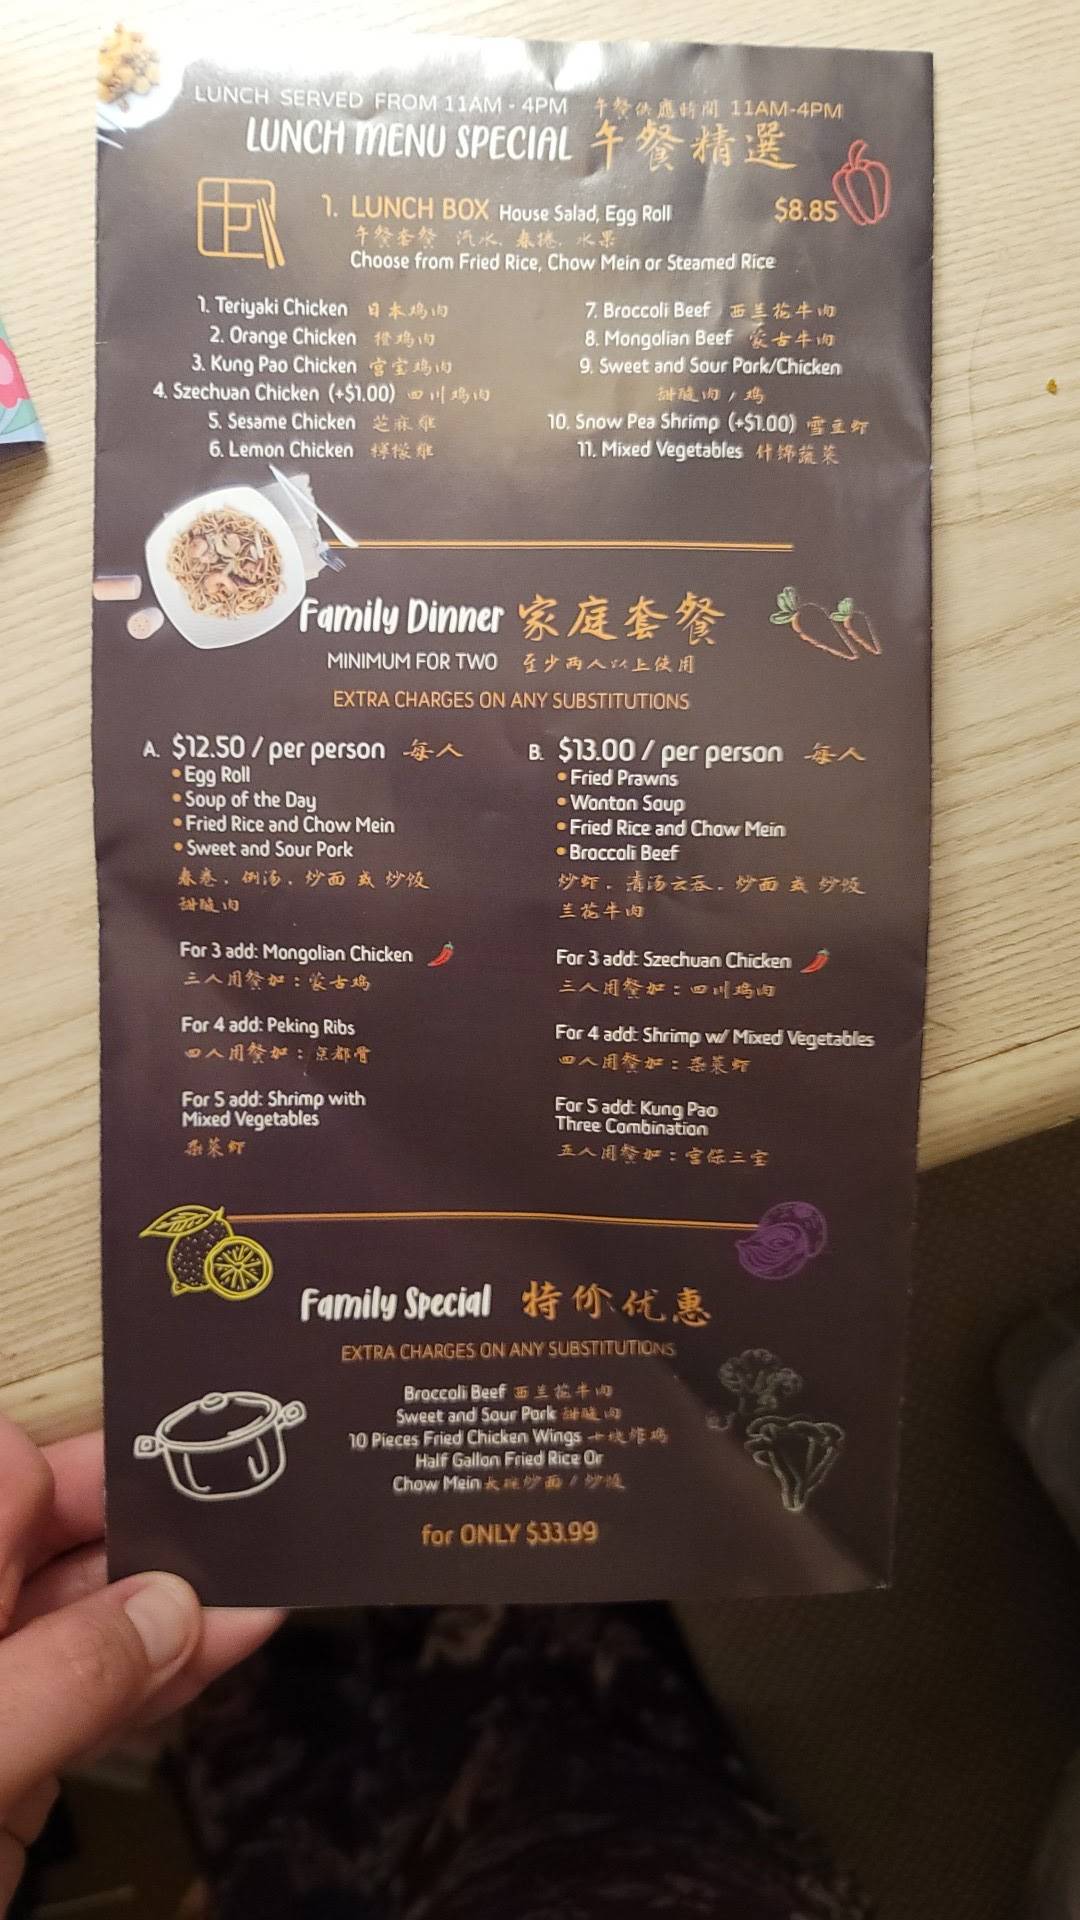 LUNCH SERVED FROM 11AM - 4PM 午餐供應時間 11AM-4PM
LUNCH MENU SPECIAL 午餐精選
1. LUNCH BOX House Salad, Egg Roll $8.85
午餐套餐 汽水、春捲、水果
Choose from Fried Rice, Chow Mein or Steamed Rice
1. Teriyaki Chicken 日本鸡肉
2. Orange Chicken 橙鸡肉
3. Kung Pao Chicken 宫宝鸡肉
4. Szechuan Chicken (+$1.00) 四川鸡肉
5. Sesame Chicken 芝麻雞
6. Lemon Chicken 檸檬雞
7. Broccoli Beef 西兰花牛肉
8. Mongolian Beef 蒙古牛肉
9. Sweet and Sour Pork/Chicken
甜酸肉 / 鸡
10. Snow Pea Shrimp (+$1.00) 雪豆虾
11. Mixed Vegetables 什锦蔬菜
Family Dinner 家庭套餐
MINIMUM FOR TWO 至少两人以上使用
EXTRA CHARGES ON ANY SUBSTITUTIONS
A. $12.50 / per person 每人
• Egg Roll
• Soup of the Day
• Fried Rice and Chow Mein
• Sweet and Sour Pork
春卷、例汤、炒面 或 炒饭
甜酸肉
For 3 add: Mongolian Chicken
三人用餐加：蒙古鸡
For 4 add: Peking Ribs
四人用餐加：京都骨
For 5 add: Shrimp with
Mixed Vegetables
杂菜虾
B. $13.00 / per person 每人
• Fried Prawns
• Wonton Soup
• Fried Rice and Chow Mein
• Broccoli Beef
炒虾、清汤云吞、炒面 或 炒饭
兰花牛肉
For 3 add: Szechuan Chicken
三人用餐加：四川鸡肉
For 4 add: Shrimp w/ Mixed Vegetables
四人用餐加：杂菜虾
For 5 add: Kung Pao
Three Combination
五人用餐加：宫保三宝
Family Special 特价优惠
EXTRA CHARGES ON ANY SUBSTITUTIONS
Broccoli Beef 西兰花牛肉
Sweet and Sour Pork 甜酸肉
10 Pieces Fried Chicken Wings 十块炸鸡
Half Gallon Fried Rice Or
Chow Mein 大碗炒面 / 炒饭
for ONLY $33.99